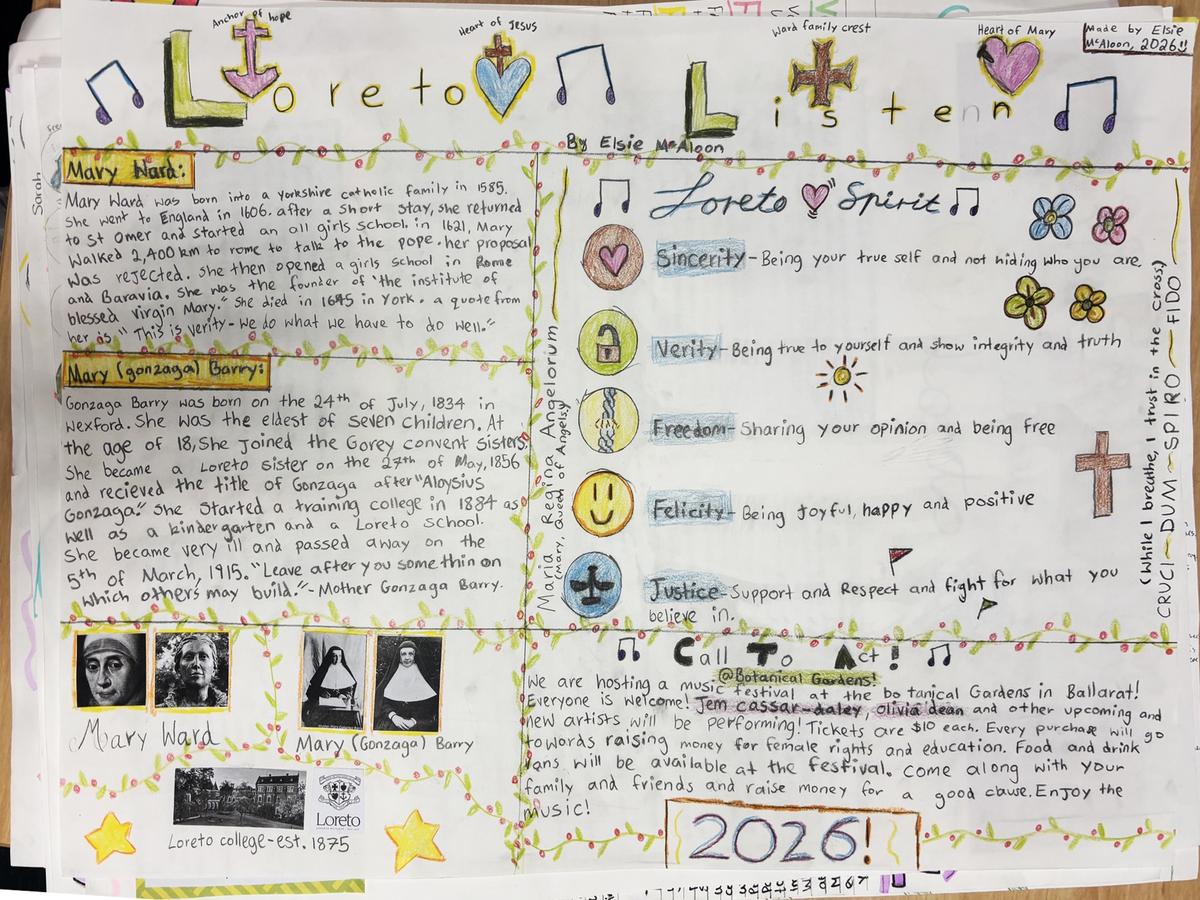 Anchor of hope
Heart of JESUS
Ward family crest
Heart of Mary
Made by Elsie
McAloon, 2026!!
Loreto Listenn
By Elsie McAloon
Mary Ward:
Mary Ward was born into a Yorkshire catholic family in 1585.
She went to England in 1606. after a short stay, she returned
to St Omer and started an all girls school. in 1621, Mary
Walked 2,400 km to rome to talk to the pope. her proposal
was rejected. She then opened a girls school in Rome
and Baravia. She was the founder of "the institute of
blessed virgin Mary." She died in 1645 in York. a quote from
her is "This is verity - We do what we have to do well."
Mary (gonzaga) Barry:
Gonzaga Barry was born on the 24th of July, 1834 in
Wexford. She was the eldest of seven children. At
the age of 18, She joined the Gorey convent sisters.
She became a Loreto sister on the 27th of May, 1856
and recieved the title of Gonzaga after "Aloysius
Gonzaga." She started a training college in 1884 as
well as a kindergarten and a Loreto school.
She became very ill and passed away on the
5th of March, 1915. "Leave after you some thin on
which others may build." - Mother Gonzaga Barry.
Mary Ward
Mary (Gonzaga) Barry
Loreto
Loreto college - est. 1875
Maria Regina Angelorum
(Mary, Queen of Angels)
Loreto Spirit
Sincerity - Being your true self and not hiding who you are.
Verity - Being true to yourself and show integrity and truth
Freedom - Sharing your opinion and being free
Felicity - Being Joyful, happy and positive
Justice - Support and Respect and fight for what you
believe in.
(While I breathe, I trust in the cross)
CRUCI - DUM - SPIRO - FIDO
Call To Act!
@Botanical Gardens!
We are hosting a music festival at the botanical Gardens in Ballarat!
Everyone is welcome! Jem cassar-daley, olivia dean and other upcoming and
new artists will be performing! Tickets are $10 each. Every purchase will go
towards raising money for female rights and education. Food and drink
vans will be available at the festival. come along with your
family and friends and raise money for a good clause. Enjoy the
music!
2026!
Sarah